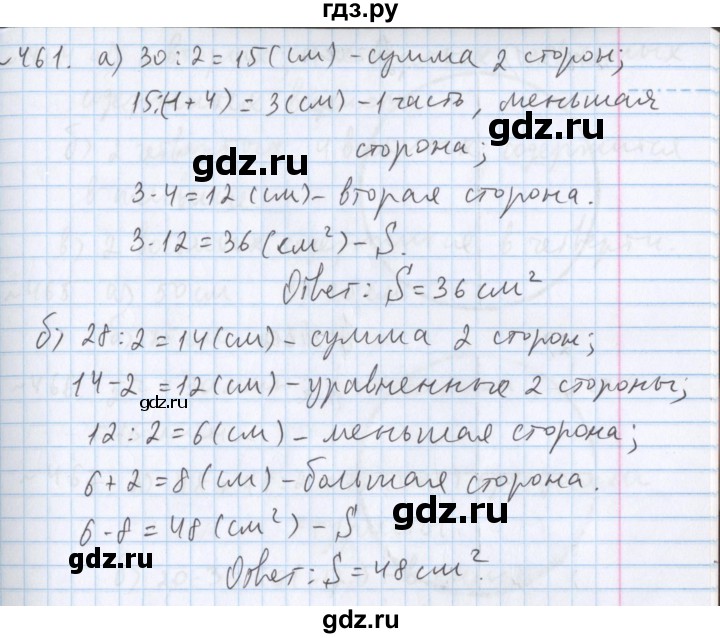 гдз.ру
№461. а) 30 : 2 = 15 (см) – сумма 2 сторон;
15:(1+4) = 3(см) – 1 часть, меньшая
gdz.ru
сторона;
gdz.ru
3·4=12 (см) – вторая сторона.
3·12=36(см²) – S.
Ответ: S=36см²
б) 28:2=14(см) – сумма 2 сторон;
14-2 =12(см) – уравненные 2 стороны;
gdz.ru
12:2=6(см) – меньшая сторона;
6+2=8(см) – большая сторона.
gdz.ru
6·8=48(см²) – S
gdz.ru
Ответ: S=48см².
gdz.ru